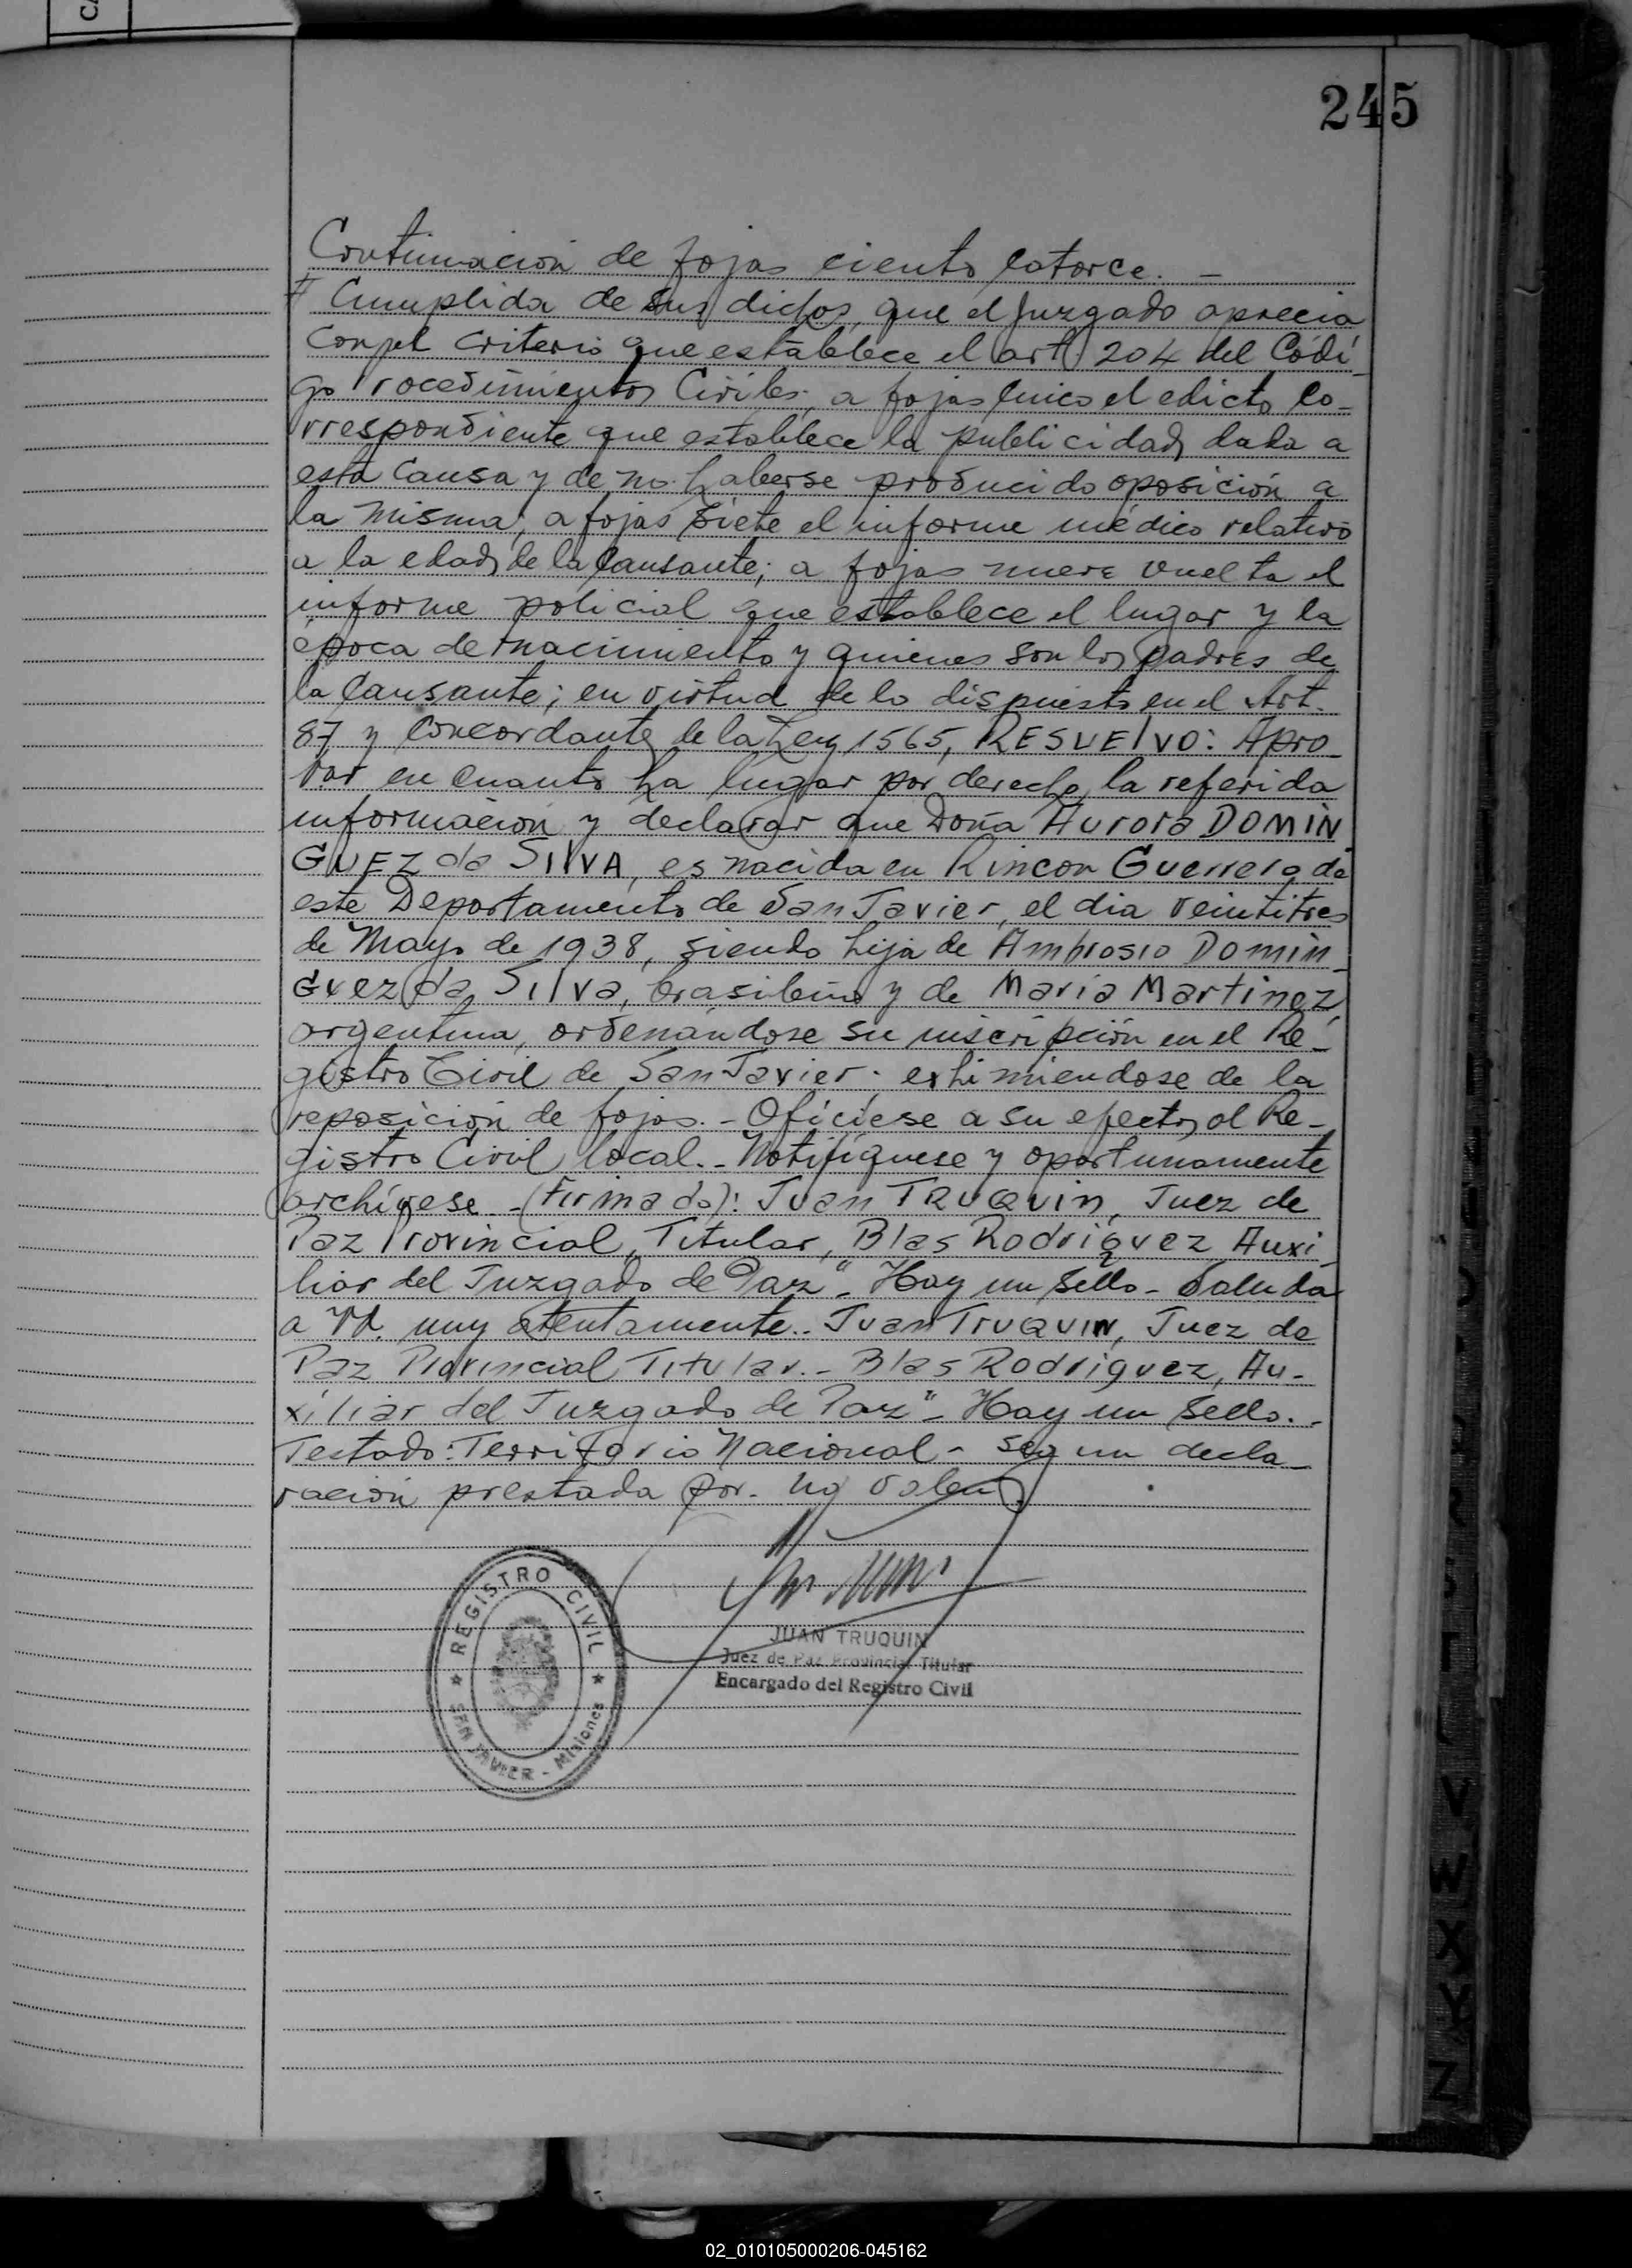 245
Continuación de fojas ciento catorce. -
# Cumplida de sus dichos, que el Juzgado aprecia
con el criterio que establece el art 204 del Códi-
go Procedimientos Civiles; a fojas cinco el edicto co-
rrespondiente que establece la publicidad dada a
esta causa y de no haberse producido oposición a
la misma, a fojas siete el informe médico relativo
a la edad de la causante; a fojas nueve vuelta el
informe policial que establece el lugar y la
época de nacimiento y quienes son los padres de
la causante; en virtud de lo dispuesto en el Art.
87 y concordante de la Ley 1565, RESUELVO: Apro-
bar en cuanto ha lugar por derecho, la referida
información y declarar que Doña Aurora DOMIN
GUEZ da SILVA, es nacida en Rincon Guerrero, de
este Departamento de San Javier, el dia veintitres
de Mayo de 1938, siendo hija de Ambrosio Domin-
guez da Silva, brasileño y de Maria Martinez,
argentina, ordenándose su inscripción en el Re-
gistro Civil de San Javier. exhimiendose de la
reposición de fojas. - Ofíciese a su efecto, al Re-
gistro Civil local. - Notifíquese y oportunamente
archívese - (Firmado): Juan TRUQUIN, Juez de
Paz Provincial, Titular, Blas Rodriguez Auxi-
liar del Juzgado de Paz" - Hay un sello - Saluda
a Ud. muy atentamente.. Juan TRUQUIN, Juez de
Paz Provincial Titular. - Blas Rodriguez, Au-
xiliar del Juzgado de Paz" - Hay un sello. -
Testado: Territorio Nacional - segun decla-
ración prestada por. no valen
REGISTRO CIVIL
SAN JAVIER - Misiones
JUAN TRUQUIN
Juez de Paz Provincial Titular
Encargado del Registro Civil
V
W
X
Y
Z
02_010105000206-045162